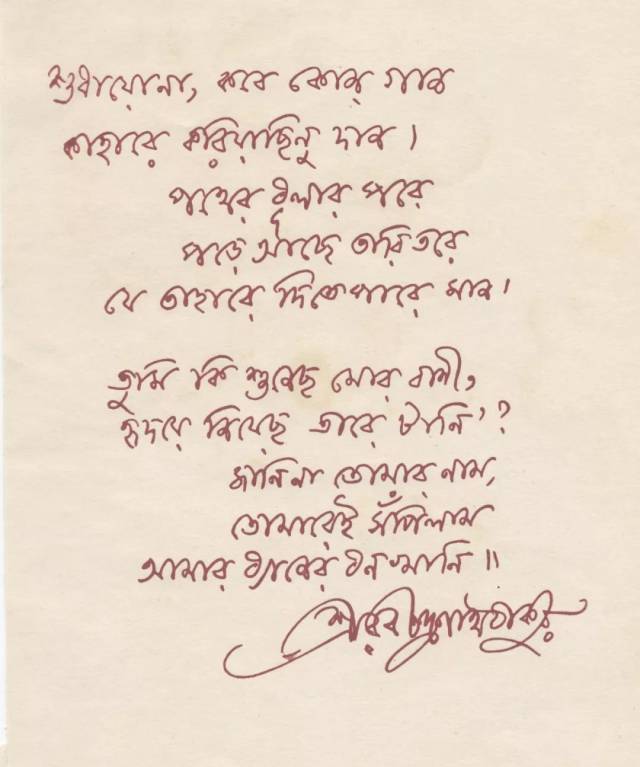 শুধায়োনা, কবে কোন্ গান
কাহারে করিয়াছিনু দান।
পথের ধূলার পরে
পড়ে আছে তারি তরে
যে তাহারে দিতে পারে মান।
তুমি কি শুনেছ মোর বাণী,
হৃদয়ে নিয়েছ তারে টানি'?
জানি না তোমার নাম,
তোমারেই সঁপিলাম
আমার ধ্যানের ধনখানি॥
শ্রীরবীন্দ্রনাথ ঠাকুর